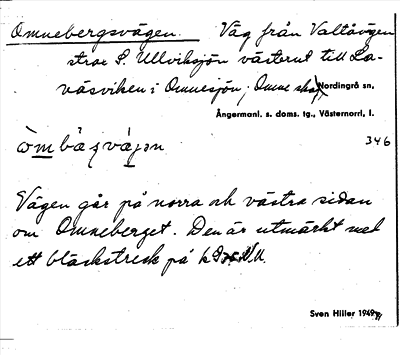 Omnebergsvägen. Väg från Valtåvägen
strax S. Ullviksjön västerut till La-
våsviken i Omnesjön, Omne
Nordingrå sn,
Ångermanl. s. doms. tg., Västernorrl, l.
346
Vägen går på norra och västra sidan
om Omneberget. Den är utmärkt med
ett bläckstreck på
Sven Hiller 1949